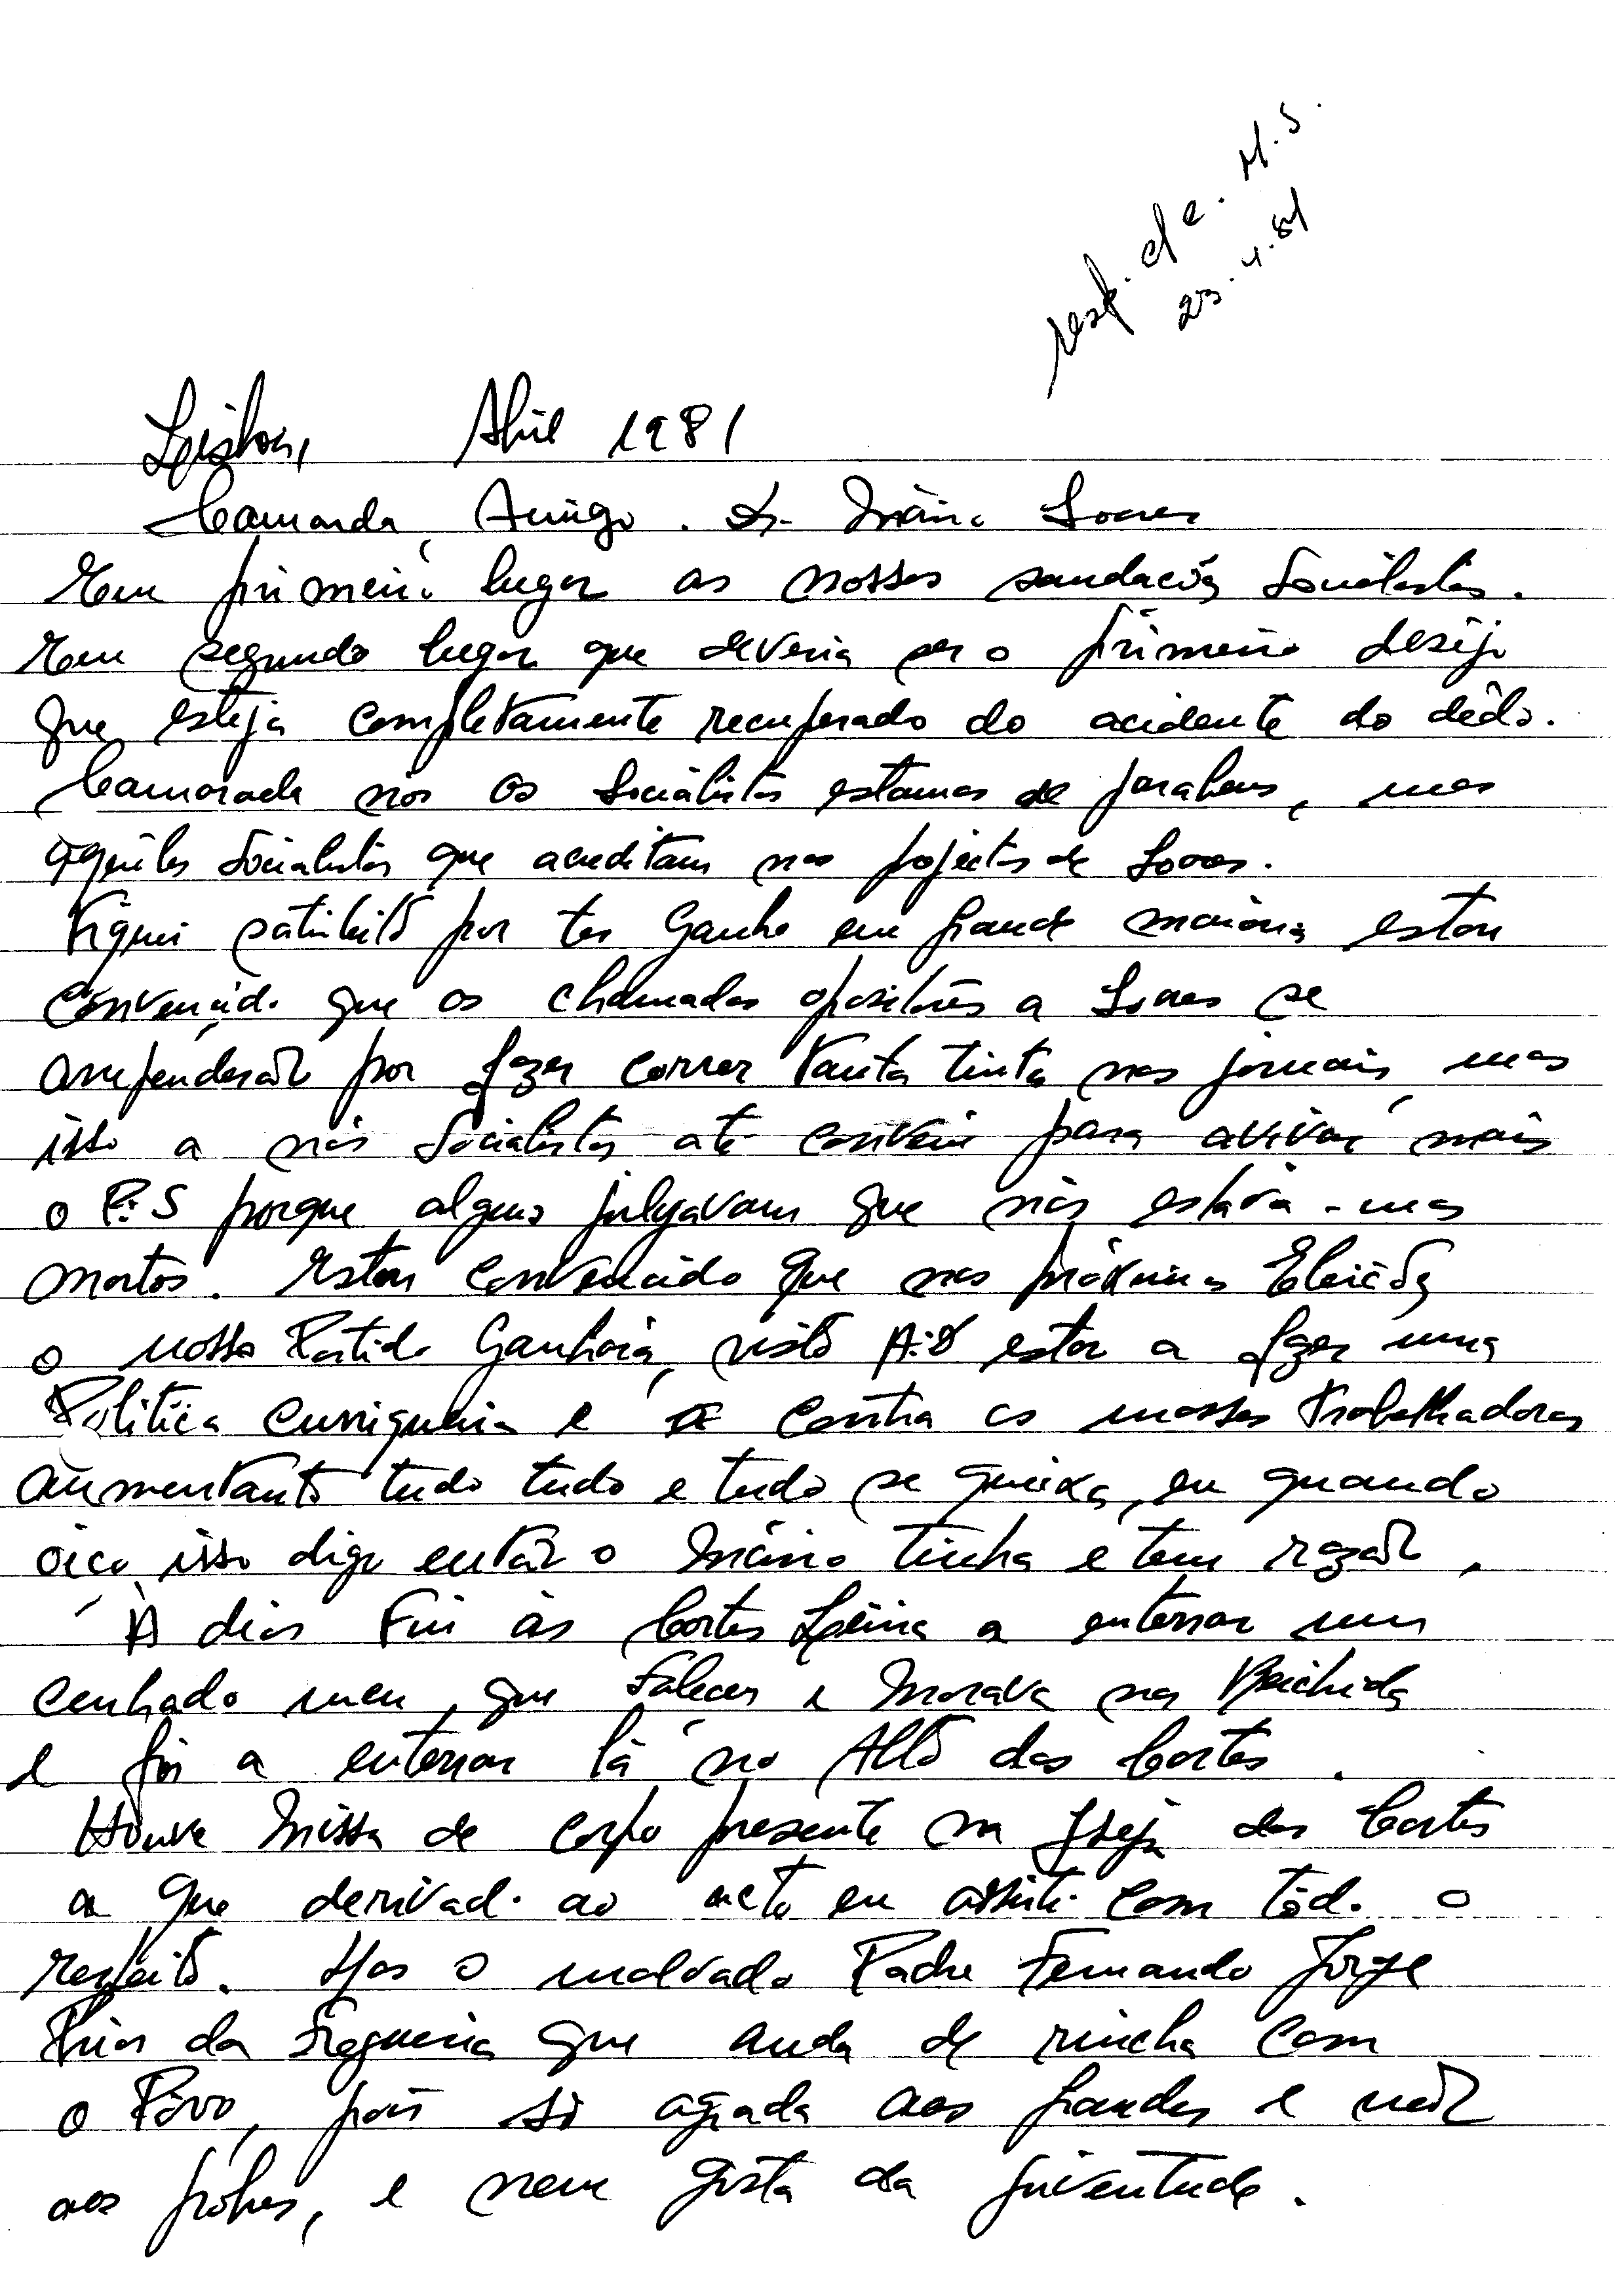 resp. de M.S.
23.4.81
Lisboa, Abril 1981
Camarada, Amigo. Dr. Mário Soares
Em primeiro lugar as nossas saudacões Socialistas.
Em segundo lugar que deveria ser o primeiro desejo
que esteja completamente recuperado do acidente do dêdo.
Camarada nós os Socialistas estamos de parabens, mas
aquêles Socialistas que acreditam nos pojectos de Soares.
Fiquei satisfeitO por ter Ganho em grande maioria estou
convencido que os chamados opositores a Soares se
arrependerão por fazer correr tanta tinta nos jornais, mas
isso a nós Socialistas até convém para avivar mais
o P.S porque alguns julgavam que nós estáva-mos
mortos. Estou convencido que nas próximas Eleicões
o nosso Partido Ganhará, visto A.D estar a fazer uma
Politica e contra as massas trabalhadoras
aumentanto tudo tudo e tudo se queixa, eu quando
oico isso digo então o Mário tinha e tem razão.
À dias Fui às Cortes Leiria a enterrar um
cunhado meu, que Faleceu e Morava na
e foi a enterrar lá no Alto das Cortes.
Houve Missa de corpo presente na Igreja das Cortes
a que derivado ao acto eu assisti com tôdo o
respeito. Mas o malvado Padre Fernando Jorge
Prior da Freguesia que anda de rincha com
o Pôvo, pois só agrada aos grandes e não
aos pobres, e nem gosta da juventude.